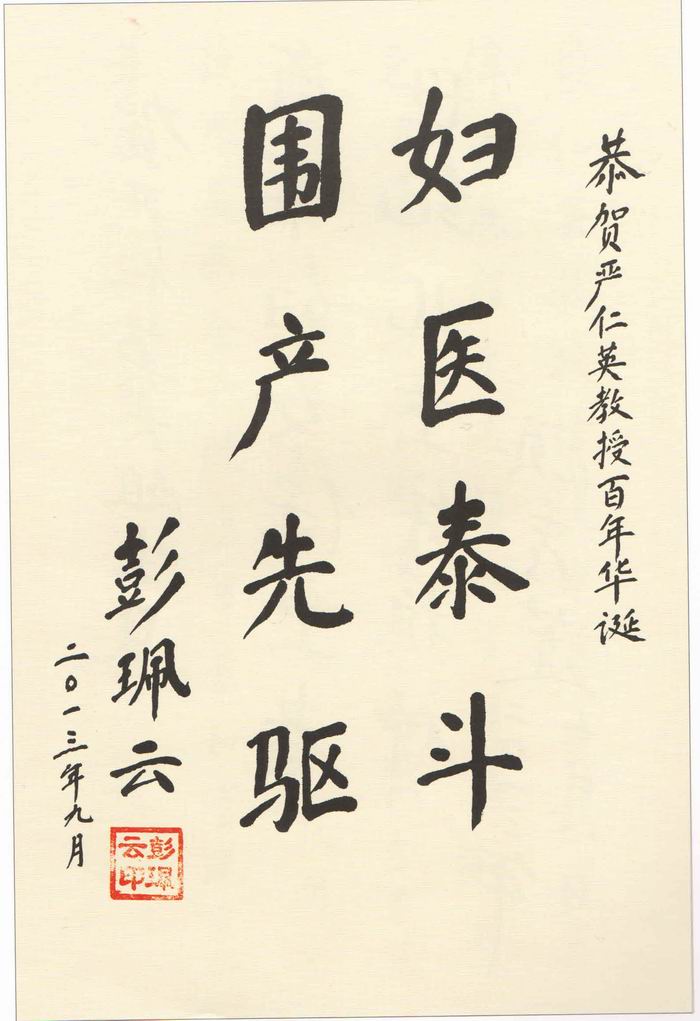 恭贺严仁英教授百年华诞
妇医泰斗
围产先驱
彭珮云
二〇一三年九月
彭珮云印